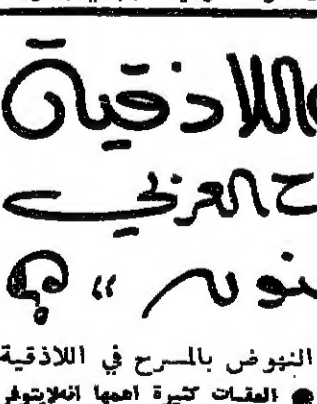 اللاذقية
ح العربي
نوي " ؟
النهوض بالمسرح في اللاذقية
● العقبات كثيرة اهمها انه لايتوفر